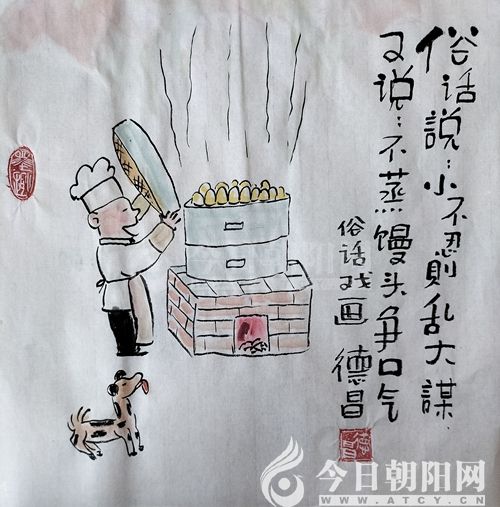 俗话说：小不忍则乱大谋
又说：不蒸馒头争口气
俗话戏画 德昌
德昌
今日朝阳网
WWW.ATCY.CN